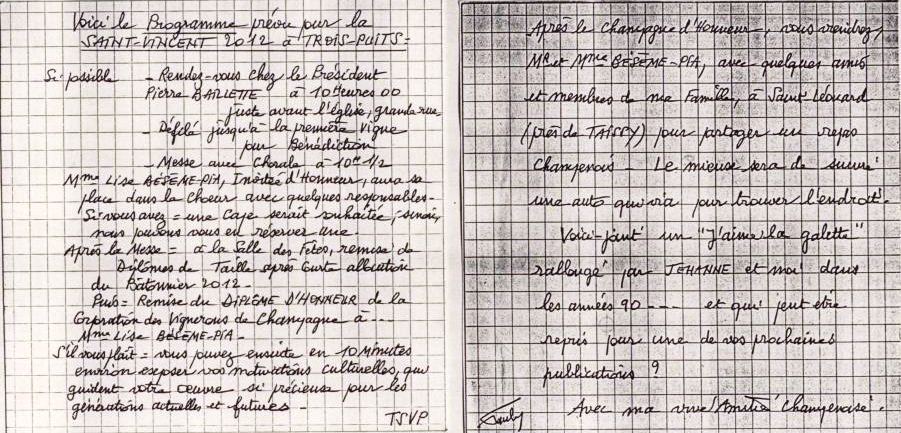 Voici le Programme prévu pour la
SAINT-VINCENT 2012 à TROIS-PUITS =
Si possible - Rendez-vous chez le Président
Pierre BAILLETTE à 10 Heures 00
juste avant l'église, grande rue,
- Défilé jusqu'à la première Vigne
pour Bénédiction
- Messe avec Chorale à 10H 1/2
Mme Lise BÉSÈME-PIA, Invitée d'Honneur, aura sa
place dans le Choeur avec quelques responsables -
Si vous avez = une Cape serait souhaitée, sinon,
nous pouvons vous en réserver une.
Après la Messe = à la Salle des Fêtes, remise de
Diplômes de Taille après Courte allocution
du Bâtonnier 2012 -
Puis = Remise du DIPLÔME D'HONNEUR de la
Corporation des Vignerons de Champagne à ...
Mme Lise BÉSÈME-PIA -
S'il vous plaît = vous pouvez ensuite en 10 minutes
environ exposer vos motivations culturelles, qui
guident votre œuvre si précieuse pour les
générations actuelles et futures -
TSVP
Après le Champagne d'Honneur, vous viendrez,
Mr et Mme BÉSÈME-PIA, avec quelques amis
et membres de ma Famille, à Saint Léonard
(près de TAISSY) pour partager un repas
Champenois - Le mieux sera de suivre
une auto qui ira pour trouver l'endroit.
Voici-joint un "J'aime la galette"
rallongé par JEHANNE et moi dans
les années 90 ---- et qui peut être
repris pour une de vos prochaines
publications ?
Avec ma vive Amitié Champenoise.